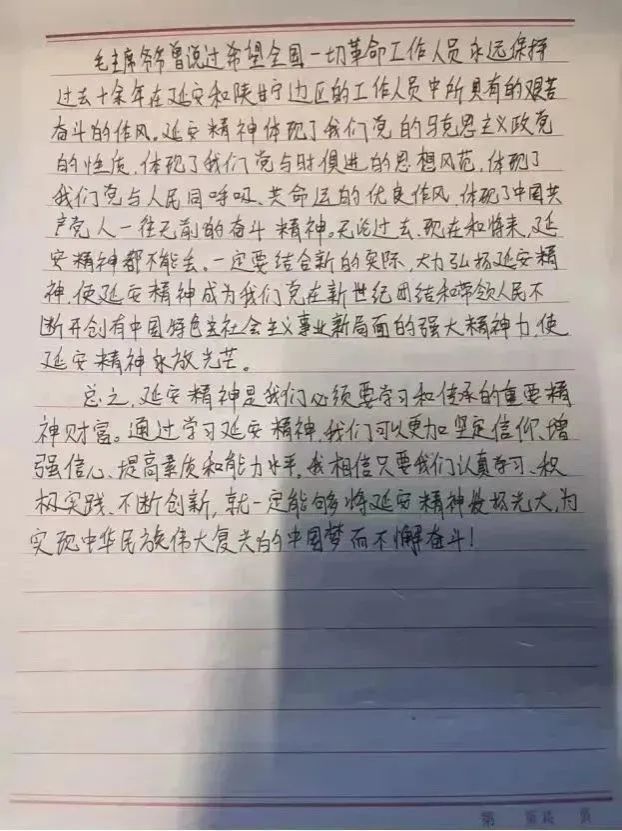 毛主席爷爷曾说过希望全国一切革命工作人员永远保持
过去十余年在延安和陕甘宁边区的工作人员中所具有的艰苦
奋斗的作风。延安精神体现了我们党的马克思主义政党
的性质,体现了我们党与时俱进的思想风范,体现了
我们党与人民同呼吸、共命运的优良作风,体现了中国共
产党人一往无前的奋斗精神。无论过去、现在和将来,延
安精神都不能丢。一定要结合新的实际,大力弘扬延安精
神,使延安精神成为我们党在新世纪团结和带领人民不
断开创有中国特色主社会主义事业新局面的强大精神力,使
延安精神永放光芒。
总之,延安精神是我们必须要学习和传承的重要精
神财富。通过学习延安精神,我们可以更加坚定信仰、增
强信心、提高素质和能力水平,我相信只要我们认真学习、积
极实践、不断创新,就一定能够将延安精神发扬光大,为
实现中华民族伟大复兴的的中国梦而不懈奋斗!
第 页